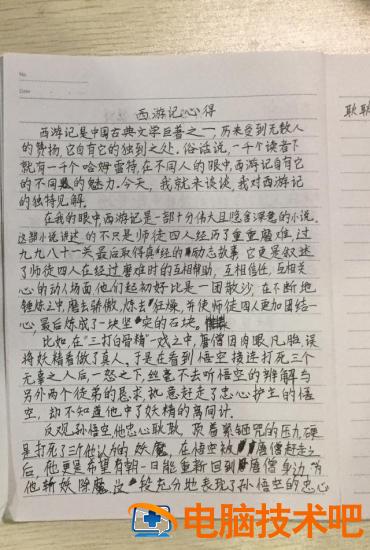 No.
Date
西游记心得
西游记是中国古典文学巨著之一,历来受到无数人
的赞扬,它自有它的独到之处。俗话说,一千个读者下
就有一千个哈姆雷特,在不同人的眼中,西游记自有它
的不同的魅力。今天,我就来谈谈,我对西游记
的独特见解。
在我的眼中,西游记是一部十分伟大且隐含深意的小说。
这部小说讲述的不只是师徒四人经历了重重磨难,过
九九八十一关最后取得真经的励志故事,它更是叙述
了师徒四人在经过磨难时的互相帮助,互相信任,互相关
心的动人场面,他们起初好比是一团散沙,在不断地
锤炼之中,磨去骄傲,炼去狂燥,并使师徒四人更加团结一
心,最后炼成了一块坚实的石块。
比如,在“三打白骨精”一戏之中,唐僧因肉眼凡胎,误
将妖精看做了真人,于是在看到悟空接连打死三个
无辜之人后,一怒之下,丝毫不去听悟空的辨解与
另外两个徒弟的恳求,执意赶走了忠心护主的悟
空,却不知道他中了妖精的离间计。
反观孙悟空,他忠心耿耿,顶着紧箍咒的压力,硬
是打死了三个他认为的妖魔,在悟空被唐僧赶走之
后,他更是希望有朝一日能重新回到唐僧身边,为
他斩妖除魔,这较充分地表现了孙悟空的忠心
耿耿
电脑技术吧